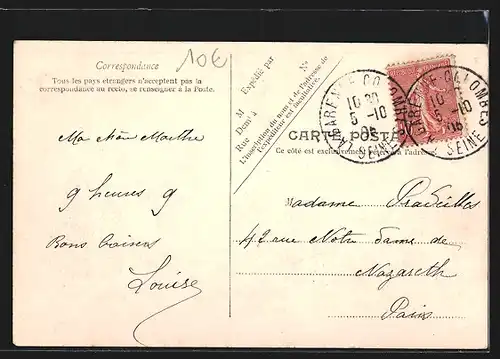 Correspondance
10€
Tous les pays étrangers n'acceptent pas la
correspondance au recto, se renseigner à la Poste.
Ma Mère Marthe
9 heures 9
Bons baisers
Louise
Expédié par
M
N°
Demt à
Rue
L'inscription du nom et de l'adresse de
l'expéditeur est facultative.
CARTE POSTALE
Ce côté est exclusivement réservé à l'adresse
LA GARENNE-COLOMBES
10 30
5 -10
06
SEINE
GARENNE-COLOMBES
10
5 -10
06
SEINE
Madame Pradelles
42 rue Notre Dame de
Nazareth
Paris